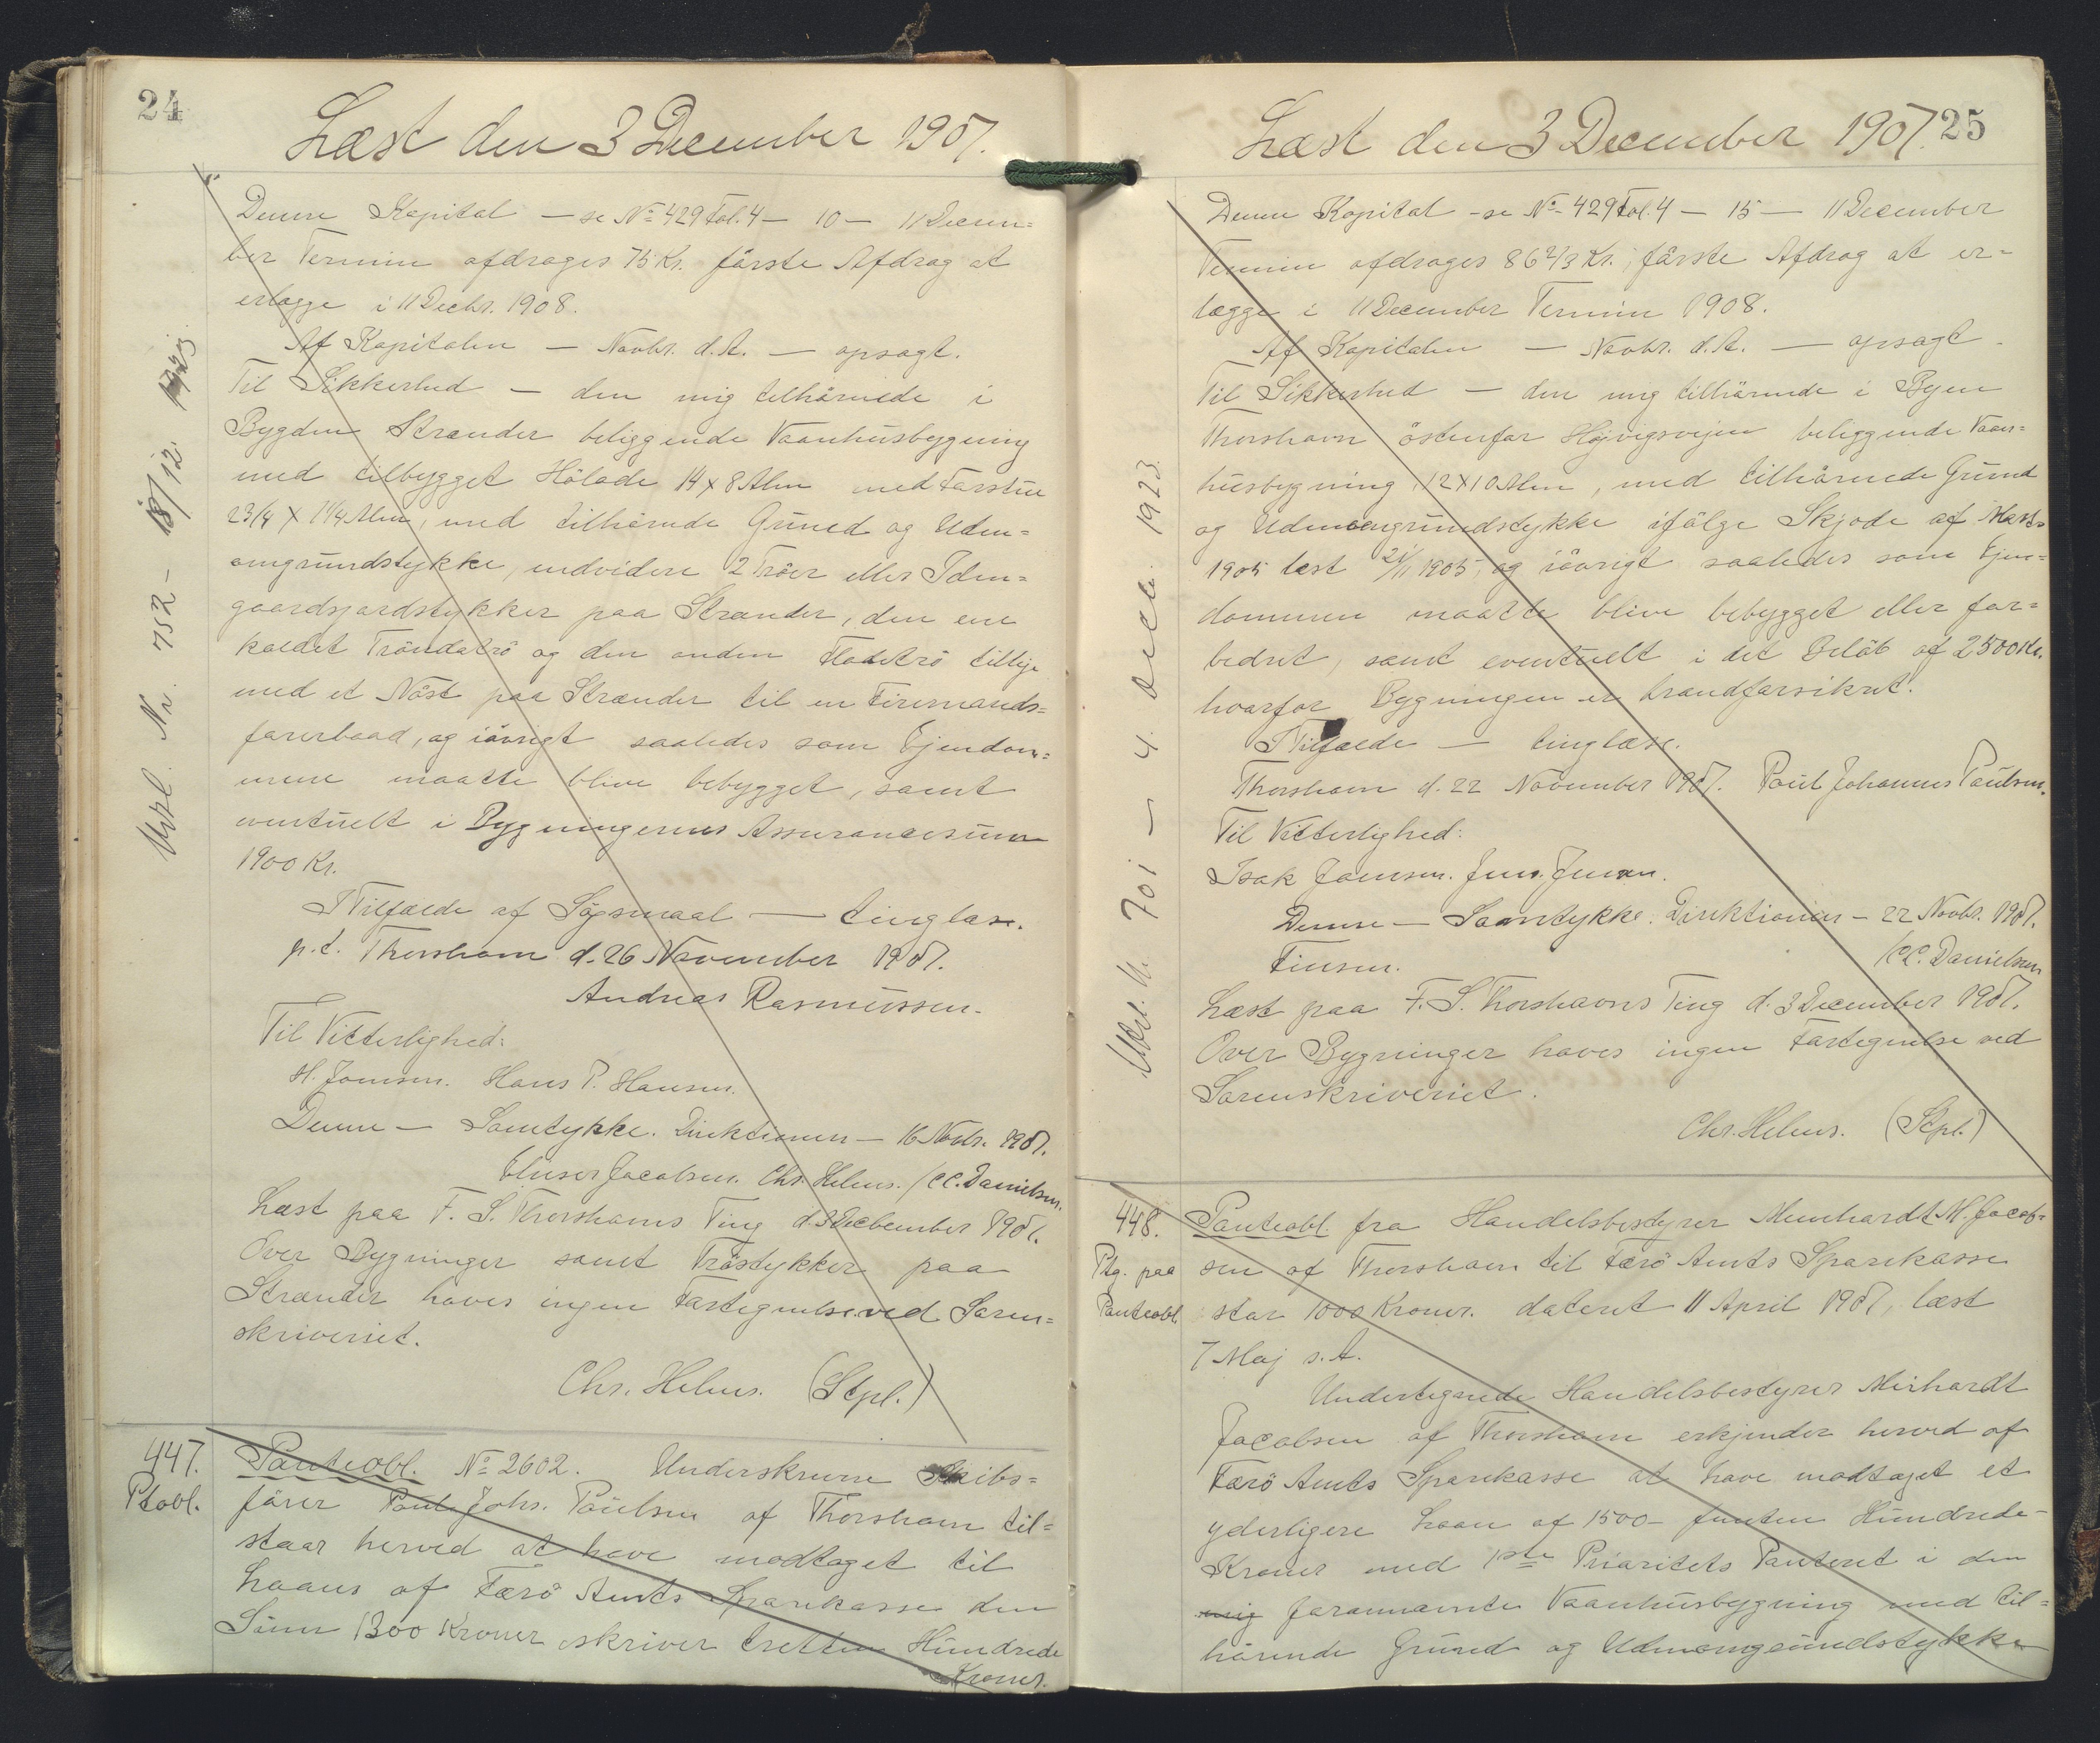 24
Læst den 3 December 1907.
Denne Kapital – se № 429 Fol. 4 – 10 – 11 Decem=
ber Termin afdrages 75 Kr. förste Afdrag at
erlægge i 11 Decbr. 1908.
Af Kapitalen – Novbr. d. A. – opsagt.
Til Sikkerhed – den mig tilhörende i
Bygden Strænder beliggende Vaanhusbygning
med tilbygget Hölade 14 x 8 Alen med Forstue
2 3/4 x 1 1/4 Alen, med tilhörende Grund og Uden=
omgrundstykke, endvidere 2 Tröer eller Inden=
gaardsjordstykker paa Strænder, den ene
kaldet Tröndatrö og den anden Flodetrö tillige
med et Nöst paa Strænder til en Firemands=
farerbaad, og iövrigt saaledes som Ejendom=
mene maatte blive bebygget, samt
eventuelt i Bygningernes Assurancesum
1900 Kr.
I Tilfælde af Sögsmaal – tinglæse.
p. t. Thorshavn d. 26 November 1907.
Andreas Rasmussen.
Til Vitterlighed:
H. Joensen. Hans P. Hansen.
Denne – Samtykke. Direktionen – 16 Novbr. 1907.
Elieser Jacobsen. Chr. Helms. / C.C. Danielsen.
Læst paa F. S. Thorshavns Ting d. 3 Decbember 1907.
Over Bygninger samt Tröstykker paa
Strænder haves ingen Fortegnelse ved Soren=
skriveriet.
Chr. Helms. (Stpl.)
Udsl. Nr. 752 – 18/12.
447.
Ptobl.
Panteobl. № 2602. Underskrevne Skibs=
förer Poul Johs. Poulsen af Thorshavn til=
staar herved at have modtaget til
Laans af Færö Amts Sparekasse den
Sum 1300 Kroner skriver tretten Hundrede
Kroner.
25
Læst den 3 December 1907.
Denne Kapital – se № 429 Fol. 4 – 15 – 11 December
Termin afdrages 86 2/3 Kr., förste Afdrag at er=
lægge i 11 December Termin 1908.
Af Kapitalen – Novbr. d. A. – opsagt.
Til Sikkerhed – den mig tilhörende i Byen
Thorshavn östenfor Höjvigsvejen beliggende Vaan=
husbygning 12 x 10 Alen, med tilhörende Grund
og Udenomgrundstykke ifölge Skjöde af Marts
1905 læst 21/11 1905, og iövrigt saaledes som Ejen=
dommen maatte blive bebygget eller for=
bedret, samt eventuelt i det Belöb af 2500 Kr.
hvorfor Bygningen er brandforsikret.
I Tilfælde – tinglæse.
Thorshavn d. 22 November 1907. Poul Johannes Poulsen.
Til Vitterlighed:
Isak Joensen. Jens Jensen.
Denne – Samtykke. Direktionen – 22 Novbr. 1907.
Finsen. / C.C. Danielsen
Læst paa F. S. Thorshavns Ting d. 3 December 1907.
Over Bygninger haves ingen Fortegnelse ved
Sorenskriveriet.
Chr. Helms. (Stpl.)
701 – 4. Decb. 1923.
448.
Ptg. paa
Panteobl.
Panteobl. fra Handelsbestyrer Meinhardt M. Jacob=
sen af Thorshavn til Færö Amts Sparekasse
stor 1000 Kroner. dateret 11 April 1907, læst
7 Maj s. A.
Undertegnede Handelsbestyrer Meihardt
Jacobsen af Thorshavn erkjender herved af
Færö Amts Sparekasse at have modtaget et
yderligere Laan af 1500 – femten Hundrede –
Kroner med 1ste Prioritets Panteret i den
mig forannævnte Vaanhusbygning med til=
hörende Grund og Udenomgrundstykke